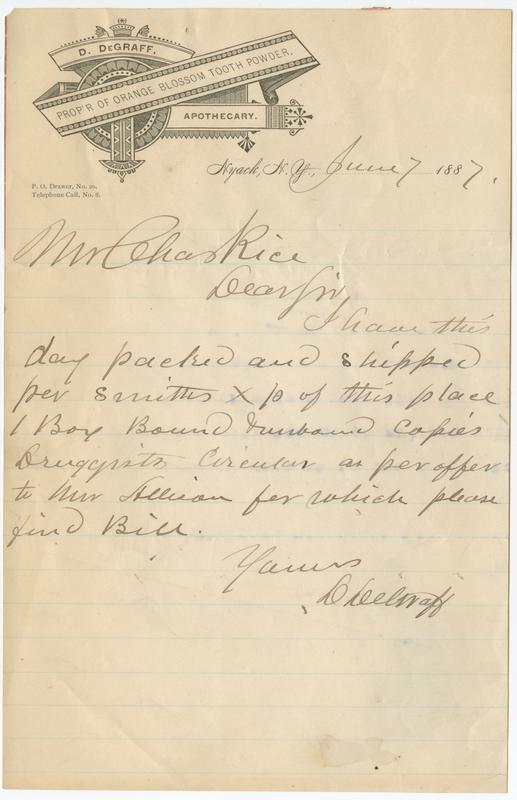 D. DEGRAFF.
PROP'R OF ORANGE BLOSSOM TOOTH POWDER.
APOTHECARY.
Nyack, N. Y., June 7 1887.
P. O. Drawer, No. 20.
Telephone Call, No. 8.
Mr Chas Rice
Dear Sir
I have this
day packed and shipped
per Smiths Xp of this place
1 Box Bound & unbound copies
Druggists Circular as per offer
to Mr Allison for which please
find Bill.
Yours
D DeGraff